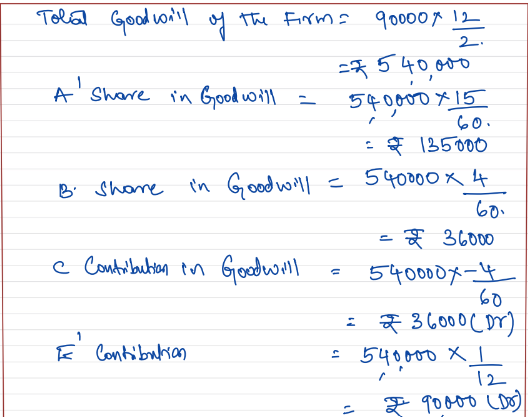 Total Goodwill of the Firm = 90000 × 12/2.
= ₹ 540,000
A' Share in Goodwill = 540,000 × 15/60.
= ₹ 135000
B. Share in Goodwill = 540000 × 4/60.
= ₹ 36000
C Contribution in Goodwill = 540000 × -4/60
= ₹ 36000 (Dr)
E' Contibution = 540,000 × 1/12
= ₹ 90000 (Dr)